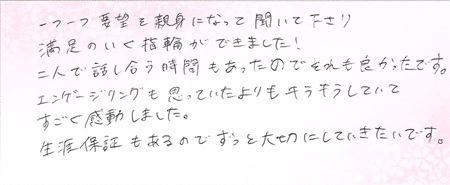 一つ一つ要望を親身になって聞いて下さり
満足のいく指輪ができました!
二人で話し合う時間もあったのでそれも良かったです。
エンゲージリングも思っていたよりもキラキラしていて
すごく感動しました。
生涯保証もあるのでずっと大切にしていきたいです。